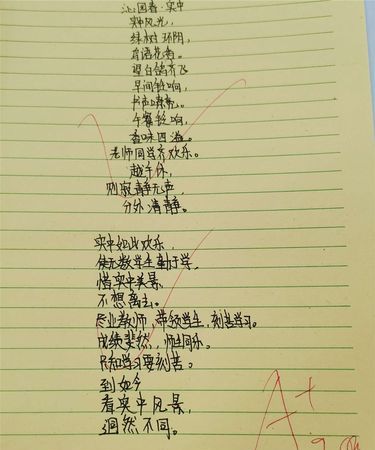 沁园春·实中
实中风光，
绿树环阴，
鸟语花香。
望白鸽齐飞
早间铃响，
书声嘹亮。
午餐铃响，
香味四溢。
老师同学齐欢乐。
越午休，
则寂静无声，
分外清静。
实中如此欢乐，
使无数学生勤于学，
惜实中美景，
不想离去。
毕业教师，带领学生，刻苦学习。
成绩斐然，师生同乐。
只和学习要刻苦。
到如今
看实中风景，
迥然不同。
A+